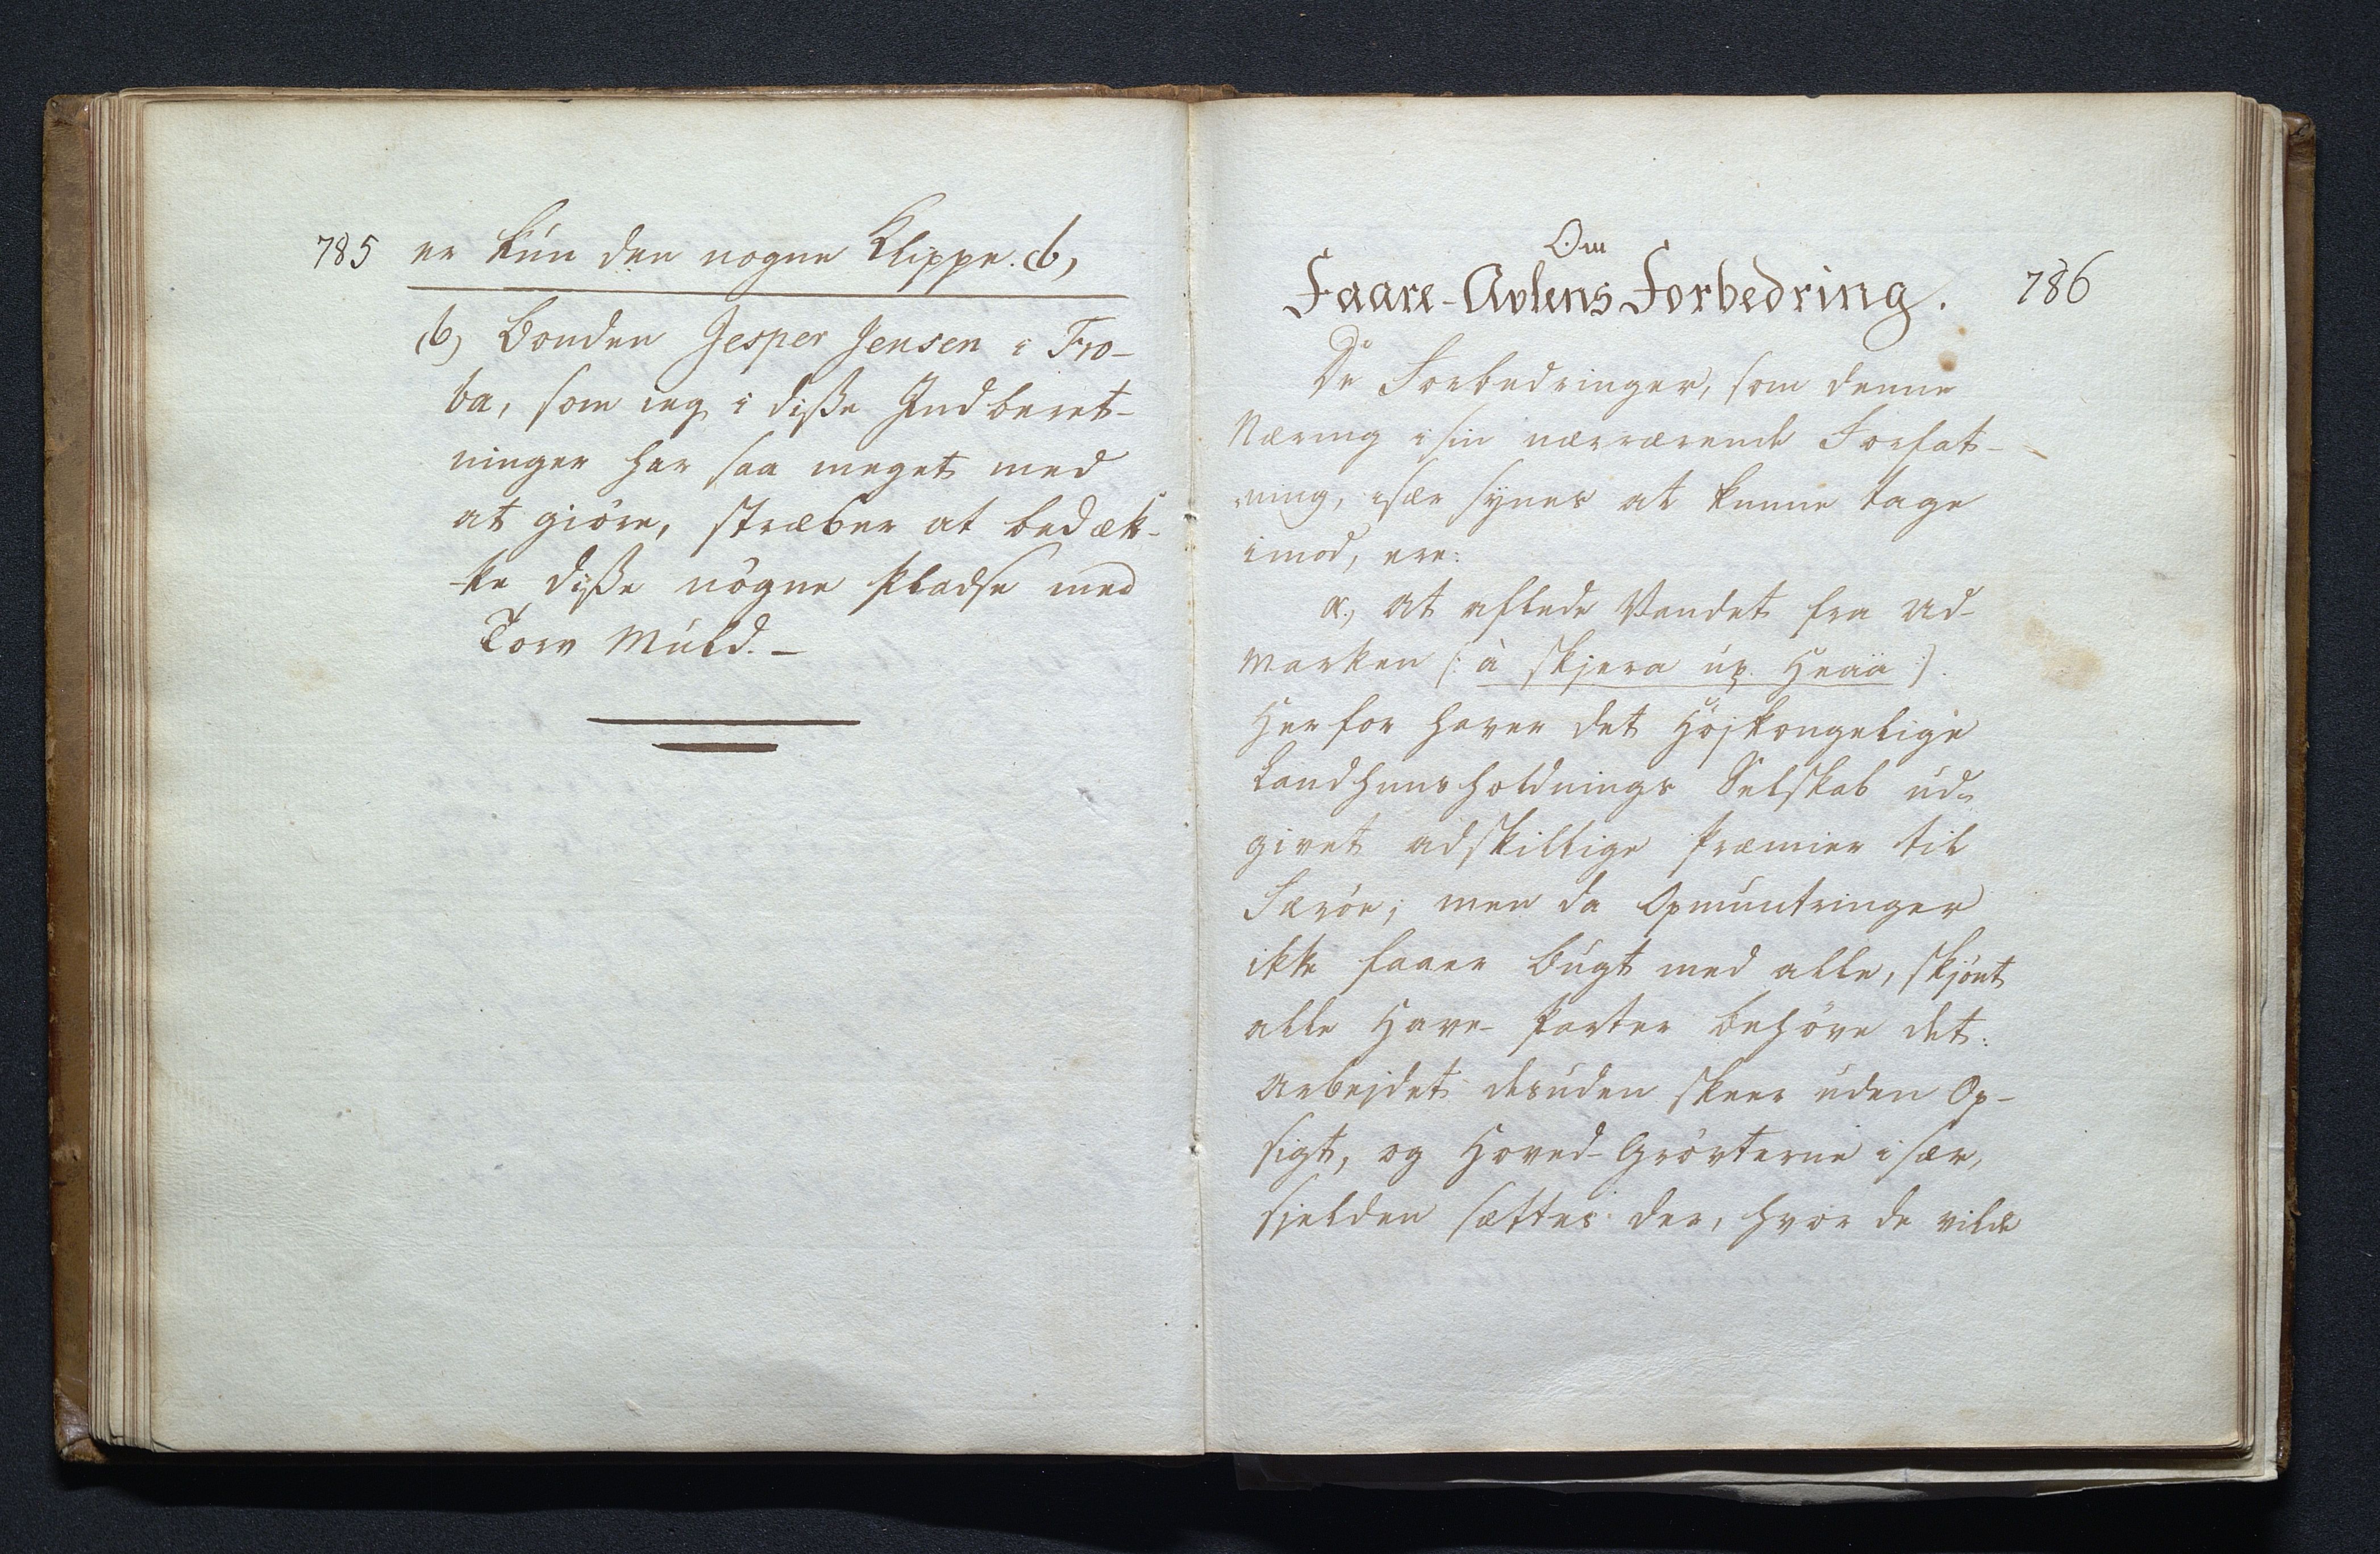 785 er kun den nogne Klippe. (b)
(b) Bonden Jesper Jensen i Fro-
ba, som ieg i diße Indberet-
ninger har saa meget med
at giöre, stræber at bedæk-
-ke diße nögne Pladse med
Torv Muld. -
Om
Faare-Avlens Forbedring. 786
De Forbedringer, som denne
Næring i sin nærværende Forfat-
ning, især synes at kunne tage
imod, ere:
α, at aflede Vandet fra Ud-
marken (: à skjera up Heaä :).
Herfor haver det Höjkongelige
Landhuusholdnings Selskab ud-
givet adskillige Præmier til
Færöe; men da Opmuntringer
ikke faaer Bugt med alle, skjönt
alle Have-Parter behöve det:
Arbejdet desuden skeer uden Op-
sigt, og Hoved-Grövterne især,
sjelden sættes der, hvor de vilde